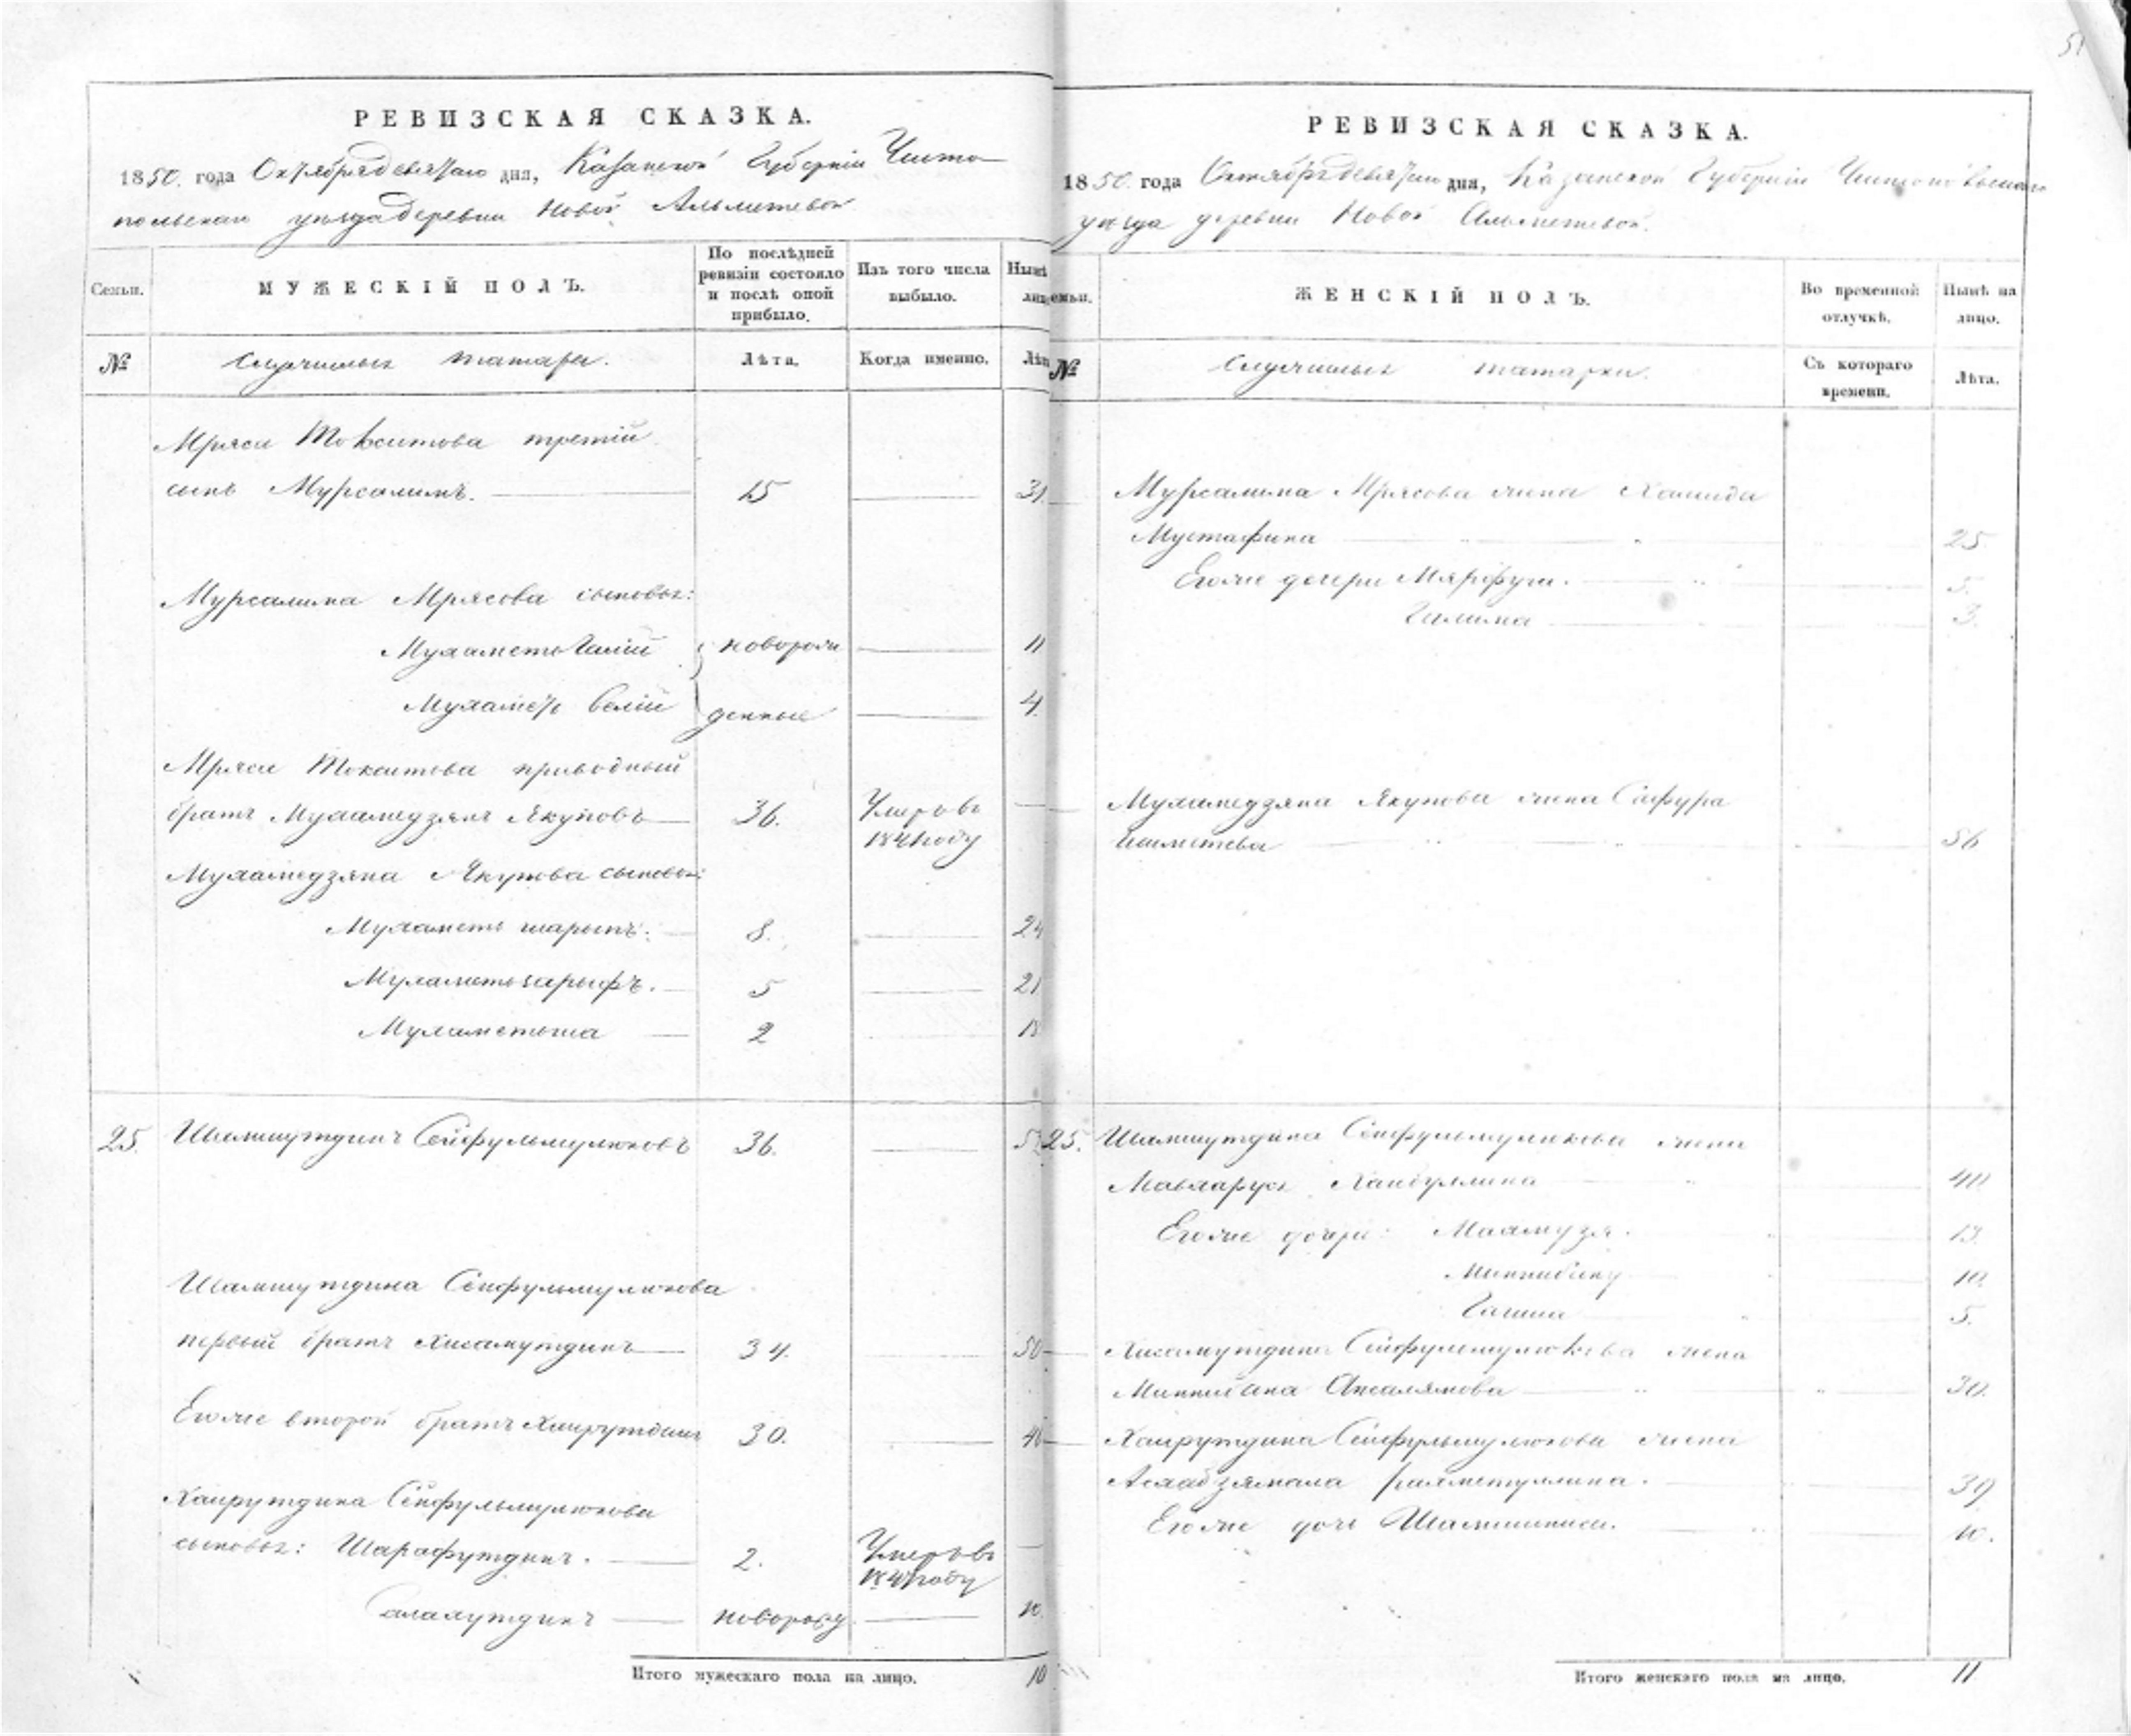 РЕВИЗСКАЯ СКАЗКА.
1850. года Октября девятаго дня, Казанской Губернiи Чисто
польскаго уѣзда деревни Новой Альметевой
Семьи.
МУЖЕСКIЙ ПОЛЪ.
По послѣдней ревизiи состояло и послѣ оной прибыло.
Изъ того числа выбыло.
Нынѣ
№
Служилыхъ татаръ.
Лѣта.
Когда именно.
Лѣта
Мряси Токаитова третiй
сынъ Мурсалимъ. 15 31.
Мурсалима Мрясова сыновья:
Мухаметь Галiй новорож 11
Мухаметъ Велiй денные 4.
Мряси Токаитова приводный
братъ Мухамедзянъ Якуповъ 36. Умеръ въ
1841 году
Мухамедзяна Якупова сыновья:
Мухаметь шарыпъ. 8. 24
Мухаметь зарыфъ. 5 21
Мухаметьша 2 18
25. Шамшутдинъ Сейфульмулюковъ 36. 52
Шамшутдина Сейфульмулюкова
первый братъ Хисамутдинъ 34. 50
Егоже второй братъ Хаирутдинъ 30. 46
Хаирутдина Сейфульмулюкова
сыновья: Шарафутдинъ. 2. Умеръ въ
1841 году
Салахутдинъ новорожд. 10.
Итого мужескаго пола на лицо. 10
РЕВИЗСКАЯ СКАЗКА.
1850. года Октября девятаго дня, Казанской Губернiи Чистопольскаго
уѣзда деревни Новой Альметевой.
семьи.
ЖЕНСКIЙ ПОЛЪ.
Во временной отлучкѣ.
Нынѣ на лицо.
№
Служилыхъ татарки.
Съ котораго времени.
Лѣта.
Мурсалима Мрясова жена Хамида
Мустафина 25.
Егоже дочери Мярфуга. 5.
Галима 3.
Мухамедзяна Якупова жена Сафура
Ишметева 56
25. Шамшутдина Сейфульмулюкова жена
Мавхаруй Хабибуллина 40
Егоже дочери: Махмузя. 13.
Миннибику 10.
Гашия 5.
Хисамутдина Сейфульмулюкова жена
Миннибика Аксалямова 30.
Хаирутдина Сейфульмулюкова жена
Асхабзямала Рахметуллина. 39
Егоже дочь Шамшиниса. 10.
Итого женскаго пола на лицо. 11